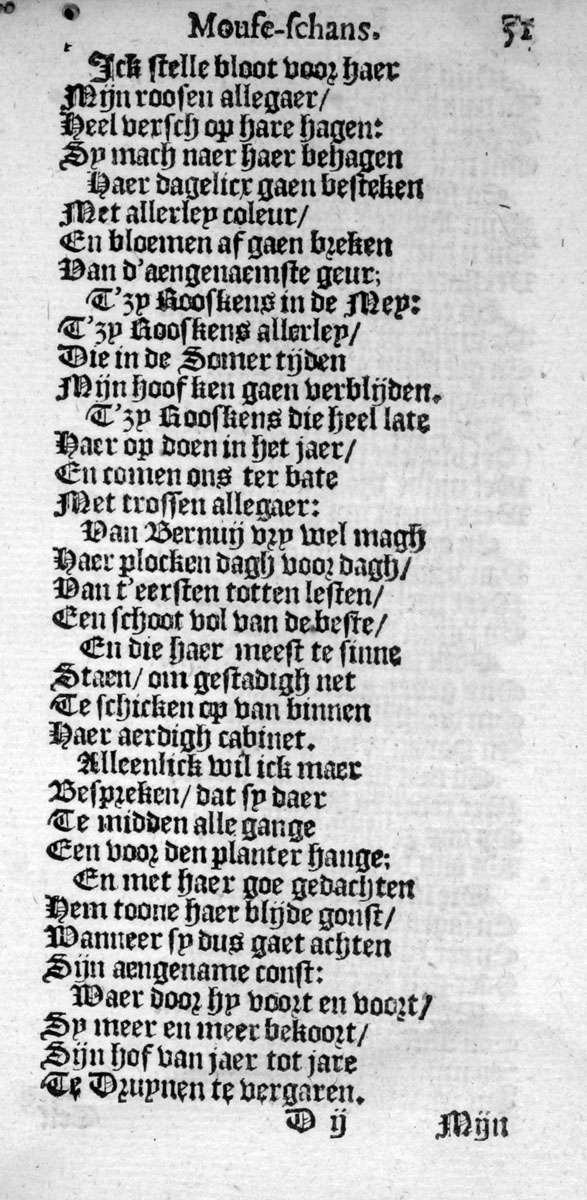 Moufe-schans. 51
Ick stelle bloot voor haer
Mijn roosen allegaer/
Heel versch op hare hagen:
Sy mach naer haer behagen
Haer dagelicx gaen besteken
Met allerley coleur/
En bloemen af gaen breken
Van d'aengenaemste geur;
T'zy Rooskens in de Mey:
T'zy Rooskens allerley/
Die in de Somer tijden
Mijn hoof ken gaen verblijden.
T'zy Rooskens die heel late
Haer op doen in het jaer/
En comen ons ter bate
Met trossen allegaer:
Van Bernuij vry wel magh
Haer plocken dagh voor dagh/
Van t'eersten totten lesten/
Een schoot vol van de beste/
En die haer meest te sinne
Staen/ om gestadigh net
Te schicken op van binnen
Haer aerdigh cabinet.
Alleenlick wil ick maer
Bespreken/ dat sy daer
Te midden alle gange
Een voor den planter hange;
En met haer goe gedachten
Hem toone haer blijde gonst/
Wanneer sy dus gaet achten
Sijn aengename const:
Waer door hy voort en voort/
Sy meer en meer bekoort/
Sijn hof van jaer tot jare
Te Druynen te vergaren.
D ij Mijn